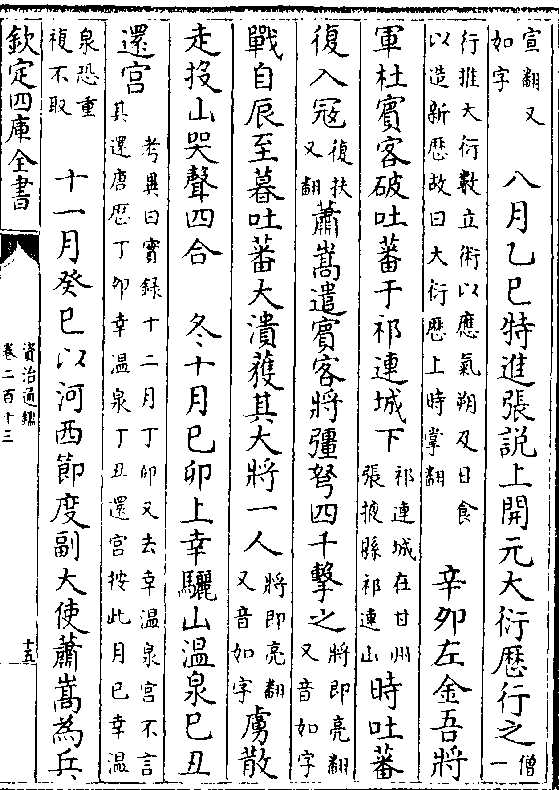 宣翻又
如字
八月乙巳特進張説上開元大衍厯行之
僧一
行推大衍數立術以應氣朔及日食
以造新厯故曰大衍厯上時掌翻
辛夘左金吾將
軍杜賓客破吐蕃于祁連城下
祁連城在甘州
張掖縣祁連山
時吐蕃
復入冦
復扶
又翻
蕭嵩遣賓客將彊弩四千擊之
將即亮翻
又音如字
戰自辰至暮吐蕃大潰獲其大將一人
將即亮翻
又音如字
虜散
走投山哭聲四合 冬十月巳卯上幸驪山温泉巳丑
還宫
考異曰實録十二月丁卯又去幸温泉宫不言
其還唐厯丁卯幸温泉丁丑還宫按此月巳幸温
泉恐重
複不取
十一月癸巳以河西節度副大使蕭嵩為兵
欽定四庫全書
資治通鑑
卷二百十三
十五